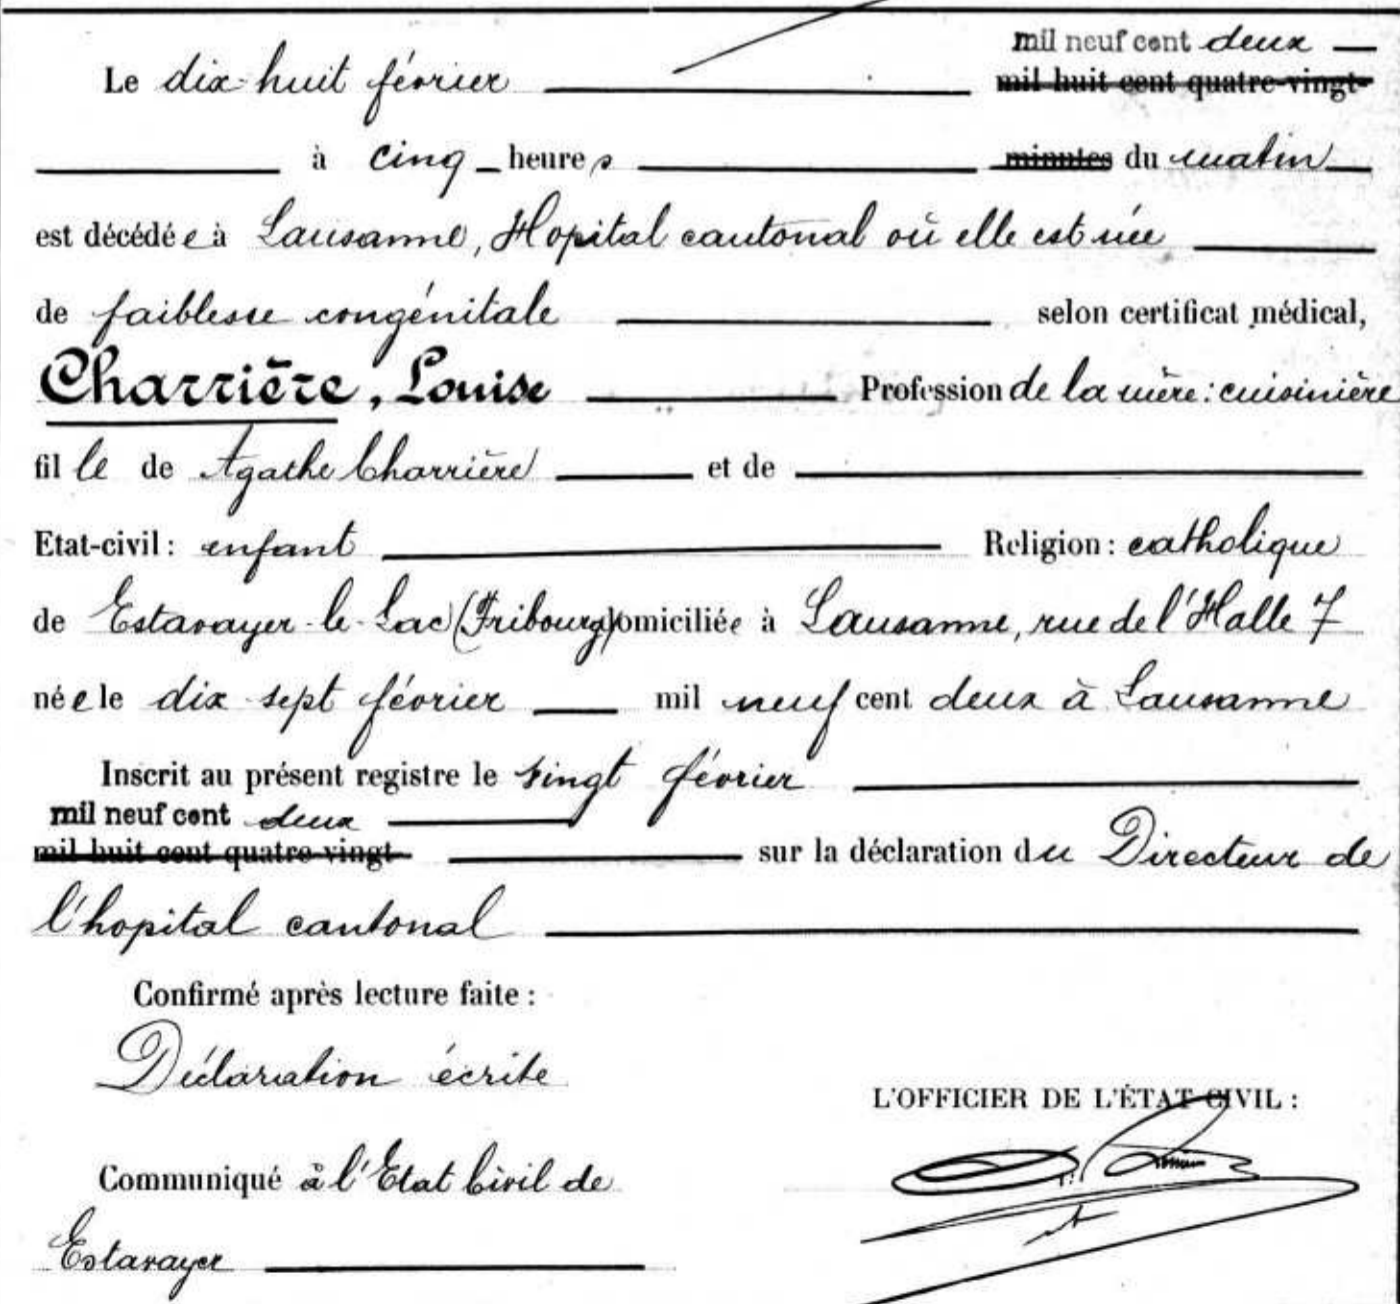 mil neuf cent deux
Le dix-huit février mil huit cent quatre-vingt-
à cinq heures minutes du matin
est décédée à Lausanne, Hopital cantonal où elle est née
de faiblesse congénitale selon certificat médical,
Charrière, Louise Profession de la mère: cuisinière
fille de Agathe Charrière et de
Etat-civil: enfant Religion: catholique
de Estavayer-le-Lac (Fribourg) domiciliée à Lausanne, rue de l'Halle 7
née le dix sept février mil neuf cent deux à Lausanne
Inscrit au présent registre le vingt février
mil neuf cent deux
mil huit cent quatre-vingt- sur la déclaration du Directeur de
l'hopital cantonal
Confirmé après lecture faite:
Déclaration écrite
L'OFFICIER DE L'ÉTAT CIVIL:
Communiqué à l'Etat Civil de
Estavayer